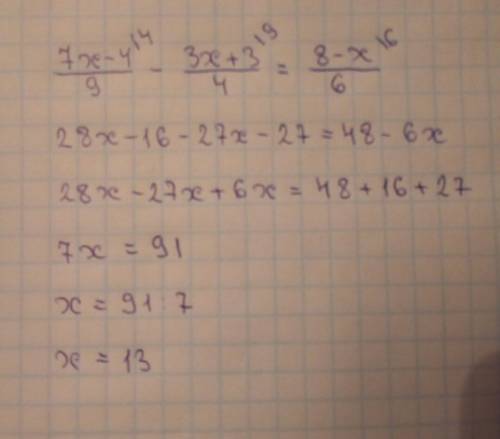 (7x-4)/9 \4 - (3x+3)/4 \9 = (8-x)/6 \6
28x-16-27x-27=48-6x
28x-27x+6x=48+16+27
7x=91
x=91:7
x=13